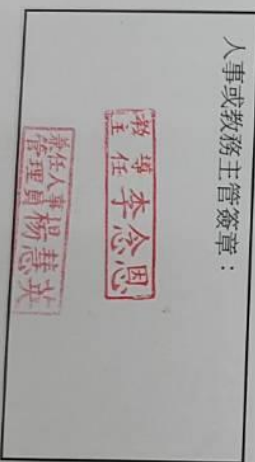 人事或教務主管簽章：
教導主任李念恩
兼任人事管理員楊慧英